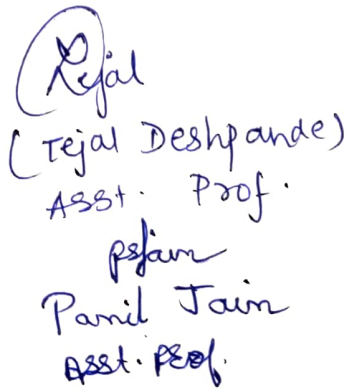 Tejal
(Tejal Deshpande)
Asst. Prof.
psjain
Panil Jain
Asst. Prof.